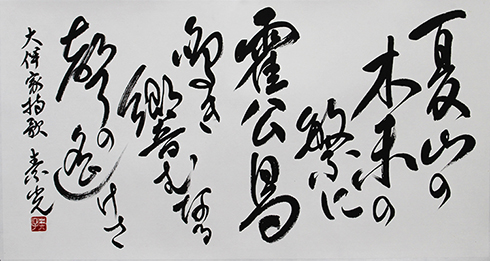 夏山の
木末の
繁に
霍公鳥
鳴き
響むなる
聲の遥けさ
大伴家持歌